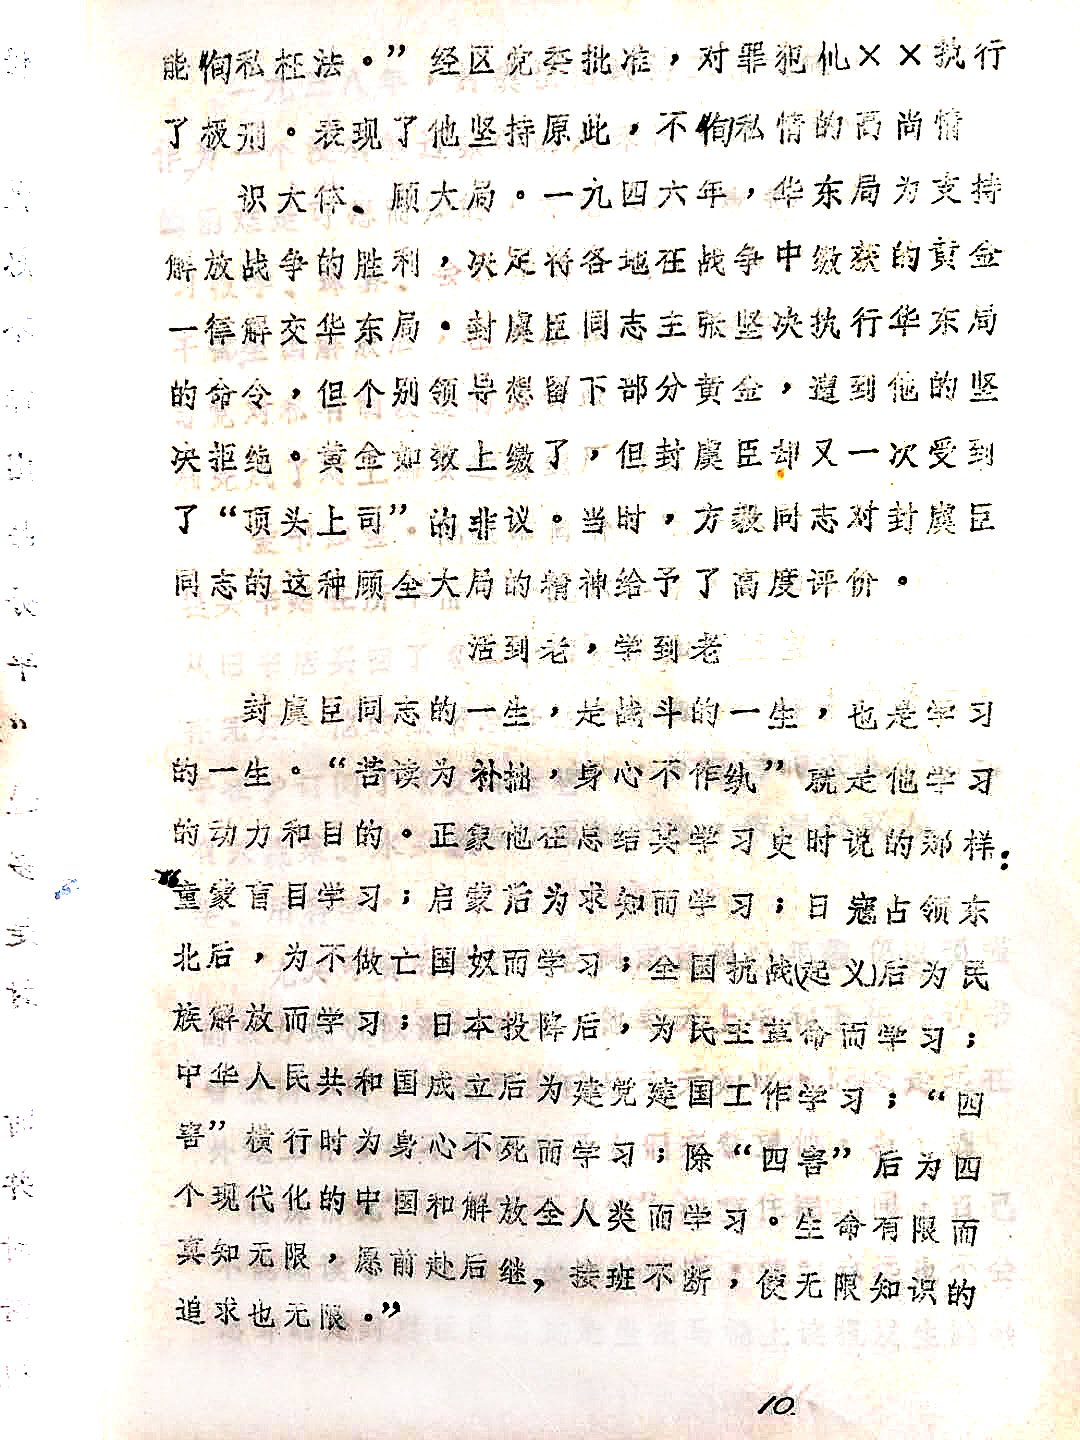 能徇私枉法。”经区党委批准，对罪犯仇××执行
了极刑。表现了他坚持原此，不徇私情的高尚情
识大体、顾大局。一九四六年，华东局为支持
解放战争的胜利，决定将各地在战争中缴获的黄金
一律解交华东局。封虞臣同志主张坚决执行华东局
的命令，但个别领导想留下部分黄金，遭到他的坚
决拒绝。黄金如数上缴了，但封虞臣却又一次受到
了“顶头上司”的非议。当时，方毅同志对封虞臣
同志的这种顾全大局的精神给予了高度评价。
活到老，学到老
封虞臣同志的一生，是战斗的一生，也是学习
的一生。“苦读为补拙，身心不作纨”就是他学习
的动力和目的。正象他在总结其学习史时说的那样：
童蒙盲目学习；启蒙后为求知而学习；日寇占领东
北后，为不做亡国奴而学习；全国抗战(起义)后为民
族解放而学习；日本投降后，为民主革命而学习；
中华人民共和国成立后为建党建国工作学习；“四
害”横行时为身心不死而学习；除“四害”后为四
个现代化的中国和解放全人类而学习。生命有限而
真知无限，愿前赴后继，接班不断，使无限知识的
追求也无限。”
10.